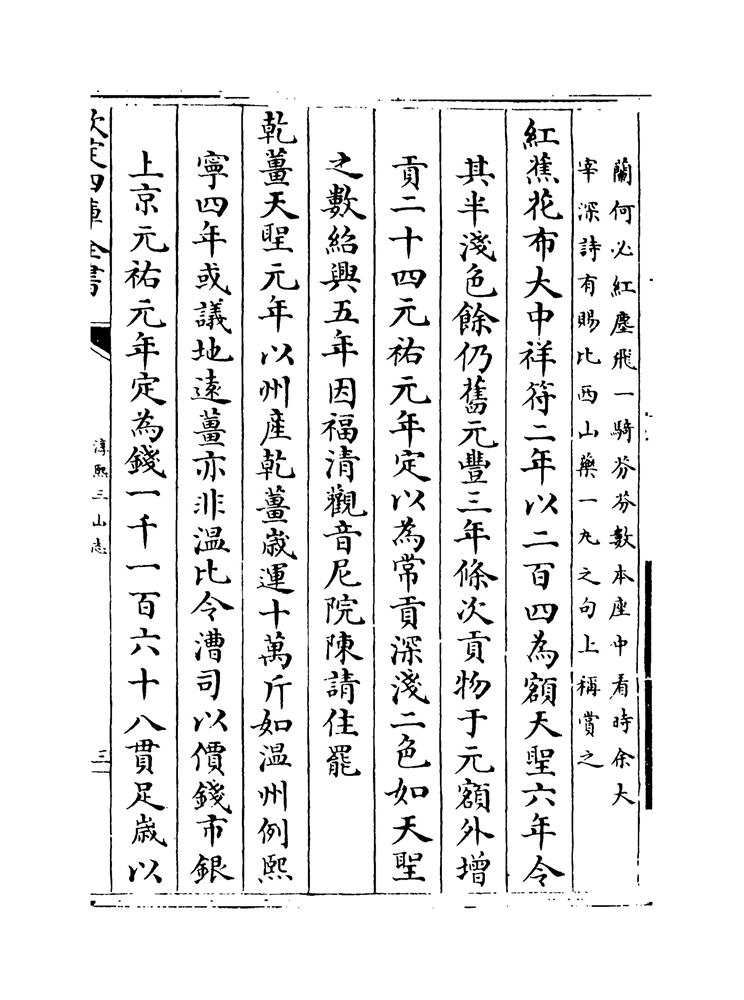 蘭何必紅塵飛一騎芬芬數本座中看時余大
宰深詩有賜比西山藥一丸之句上稱賞之
紅蕉花布大中祥符二年以二百四為額天聖六年令
其半淺色餘仍舊元豐三年條次貢物于元額外增
貢二十四元祐元年定以為常貢深淺二色如天聖
之數紹興五年因福清觀音尼院陳請住罷
乾薑天聖元年以州產乾薑歳運十萬斤如温州例熙
寧四年或議地逺薑亦非温比令漕司以價錢市銀
上京元祐元年定為錢一千一百六十八貫足歳以
欽定四庫全書
淳熙三山志
三